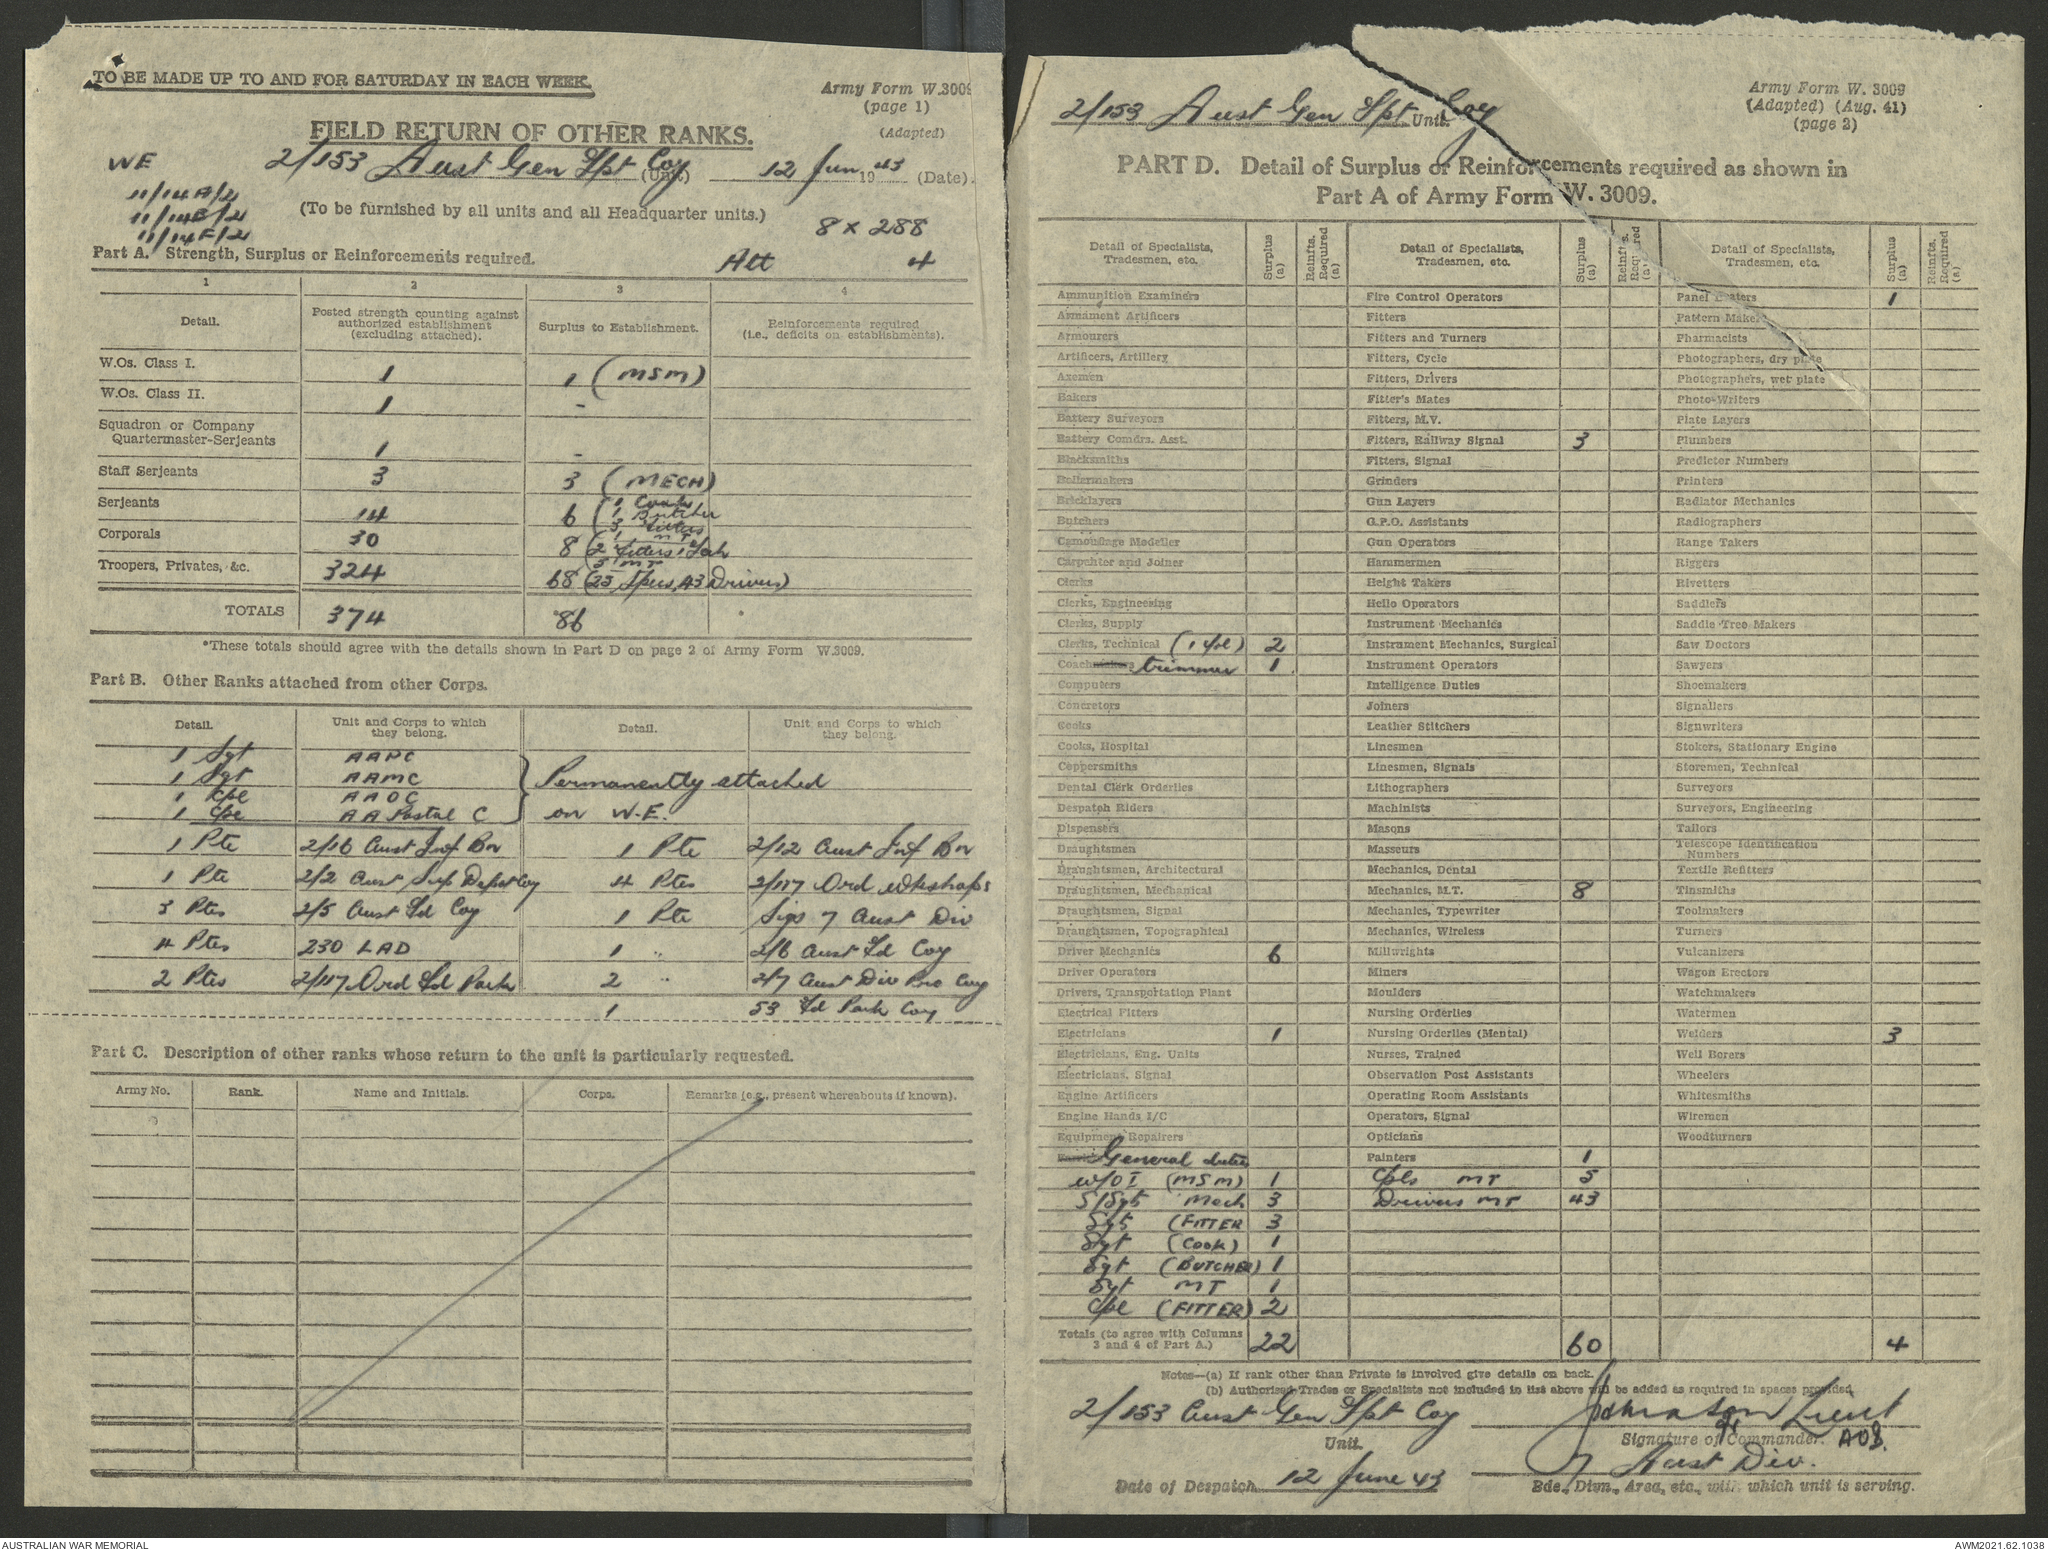 TO BE MADE UP TO AND FOR SATURDAY IN EACH WEEK.
Army Form W.3009
(page 1)
(Adapted)
FIELD RETURN OF OTHER RANKS.
WE
11/14A/2
11/14E/2
11/14F/2
2/153 Aust Gen Tpt Coy (Unit.) 12 Jun 1943 (Date).
(To be furnished by all units and all Headquarter units.)
8 x 288
Att 4
Part A. Strength, Surplus or Reinforcements required.
1 2 3 4
Detail. Posted strength counting against authorized establishment (excluding attached). Surplus to Establishment. Reinforcements required (i.e., deficits on establishments).
W.Os. Class I. 1 1 (MSM)
W.Os. Class II. 1 -
Squadron or Company Quartermaster-Serjeants 1 -
Staff Serjeants 3 3 (MECH)
Serjeants 14 6 (1 Cook
1 Butcher
3 Fitters
1 MT
Corporals 30 8 (2 Fitters 1 Tech
5 MT
Troopers, Privates, &c. 324 68 (25 Specs, 43 Drivers)
TOTALS 374 86
*These totals should agree with the details shown in Part D on page 2 of Army Form W.3009.
Part B. Other Ranks attached from other Corps.
Detail. Unit and Corps to which they belong. Detail. Unit and Corps to which they belong.
1 Sgt AAPC
1 Sgt AAMC } Permanently attached
1 Cpl AAOC
1 Cpl AA Postal C on W.E.
1 Pte 2/16 Aust Inf Bn 1 Pte 2/12 Aust Inf Bn
1 Pte 2/2 Aust Sup Depot Coy 4 Ptes 2/117 Ord Wkshops
3 Ptes 2/5 Aust Fd Coy 1 Pte Sigs 7 Aust Div
4 Ptes 230 LAD 1 " 2/6 Aust Fd Coy
2 Ptes 2/117 Ord Fd Park 2 " 2/7 Aust Div Pro Coy
1 53 Fd Park Coy
Part C. Description of other ranks whose return to the unit is particularly requested.
Army No. Rank. Name and Initials. Corps. Remarks (e.g., present whereabouts if known).
2/153 Aust Gen Tpt Coy Unit.
Army Form W. 3009
(Adapted) (Aug. 41)
(page 2)
PART D. Detail of Surplus or Reinforcements required as shown in
Part A of Army Form W. 3009.
Detail of Specialists, Tradesmen, etc. Surplus (a) Reinfts. Required (a) Detail of Specialists, Tradesmen, etc. Surplus (a) Reinfts. Required (a) Detail of Specialists, Tradesmen, etc. Surplus (a) Reinfts. Required (a)
Ammunition Examiners Fire Control Operators Panel Beaters 1
Armament Artificers Fitters Pattern Makers
Armourers Fitters and Turners Pharmacists
Artificers, Artillery Fitters, Cycle Photographers, dry plate
Axemen Fitters, Drivers Photographers, wet plate
Bakers Fitter's Mates Photo-Writers
Battery Surveyors Fitters, M.V. Plate Layers
Battery Comdrs. Asst. Fitters, Railway Signal 3 Plumbers
Blacksmiths Fitters, Signal Predictor Numbers
Boilermakers Grinders Printers
Bricklayers Gun Layers Radiator Mechanics
Butchers G.P.O. Assistants Radiographers
Camouflage Modeller Gun Operators Range Takers
Carpenter and Joiner Hammermen Riggers
Clerks Height Takers Rivetters
Clerks, Engineering Helio Operators Saddlers
Clerks, Supply Instrument Mechanics Saddle Tree Makers
Clerks, Technical (1 Cpl) 2 Instrument Mechanics, Surgical Saw Doctors
Coach trimmer 1 Instrument Operators Sawyers
Computers Intelligence Duties Shoemakers
Concretors Joiners Signallers
Cooks Leather Stitchers Signwriters
Cooks, Hospital Linesmen Stokers, Stationary Engine
Coppersmiths Linesmen, Signals Storemen, Technical
Dental Clerk Orderlies Lithographers Surveyors
Despatch Riders Machinists Surveyors, Engineering
Dispensers Masons Tailors
Draughtsmen Masseurs Telescope Identification Numbers
Draughtsmen, Architectural Mechanics, Dental Textile Refitters
Draughtsmen, Mechanical Mechanics, M.T. 8 Tinsmiths
Draughtsmen, Signal Mechanics, Typewriter Toolmakers
Draughtsmen, Topographical Mechanics, Wireless Turners
Driver Mechanics 6 Millwrights Vulcanizers
Driver Operators Miners Wagon Erectors
Drivers, Transportation Plant Moulders Watchmakers
Electrical Fitters Nursing Orderlies Watermen
Electricians 1 Nursing Orderlies (Mental) Welders 3
Electricians, Eng. Units Nurses, Trained Well Borers
Electricians, Signal Observation Post Assistants Wheelers
Engine Artificers Operating Room Assistants Whitesmiths
Engine Hands I/C Operators, Signal Wiremen
Equipment Repairers Opticians Woodturners
General duties Painters 1
W/O I (MSM) 1 Cpls MT 5
S/Sgts Mech 3 Drivers MT 43
Sgts (FITTER 3
Sgt (COOK) 1
Sgt (BUTCHER) 1
Sgt MT 1
Cpl (FITTER) 2
Totals (to agree with Columns 3 and 4 of Part A.) 22 60 4
Notes—(a) If rank other than Private is involved give details on back.
(b) Authorised Trades or Specialists not included in list above will be added as required in spaces provided.
2/153 Aust Gen Tpt Coy Johnston Lieut
Unit. Signature of Commander. AOB.
7 Aust Div.
Date of Despatch 12 June 43 Bde., Divn., Area, etc., with which unit is serving.
AUSTRALIAN WAR MEMORIAL
AWM2021.62.1038